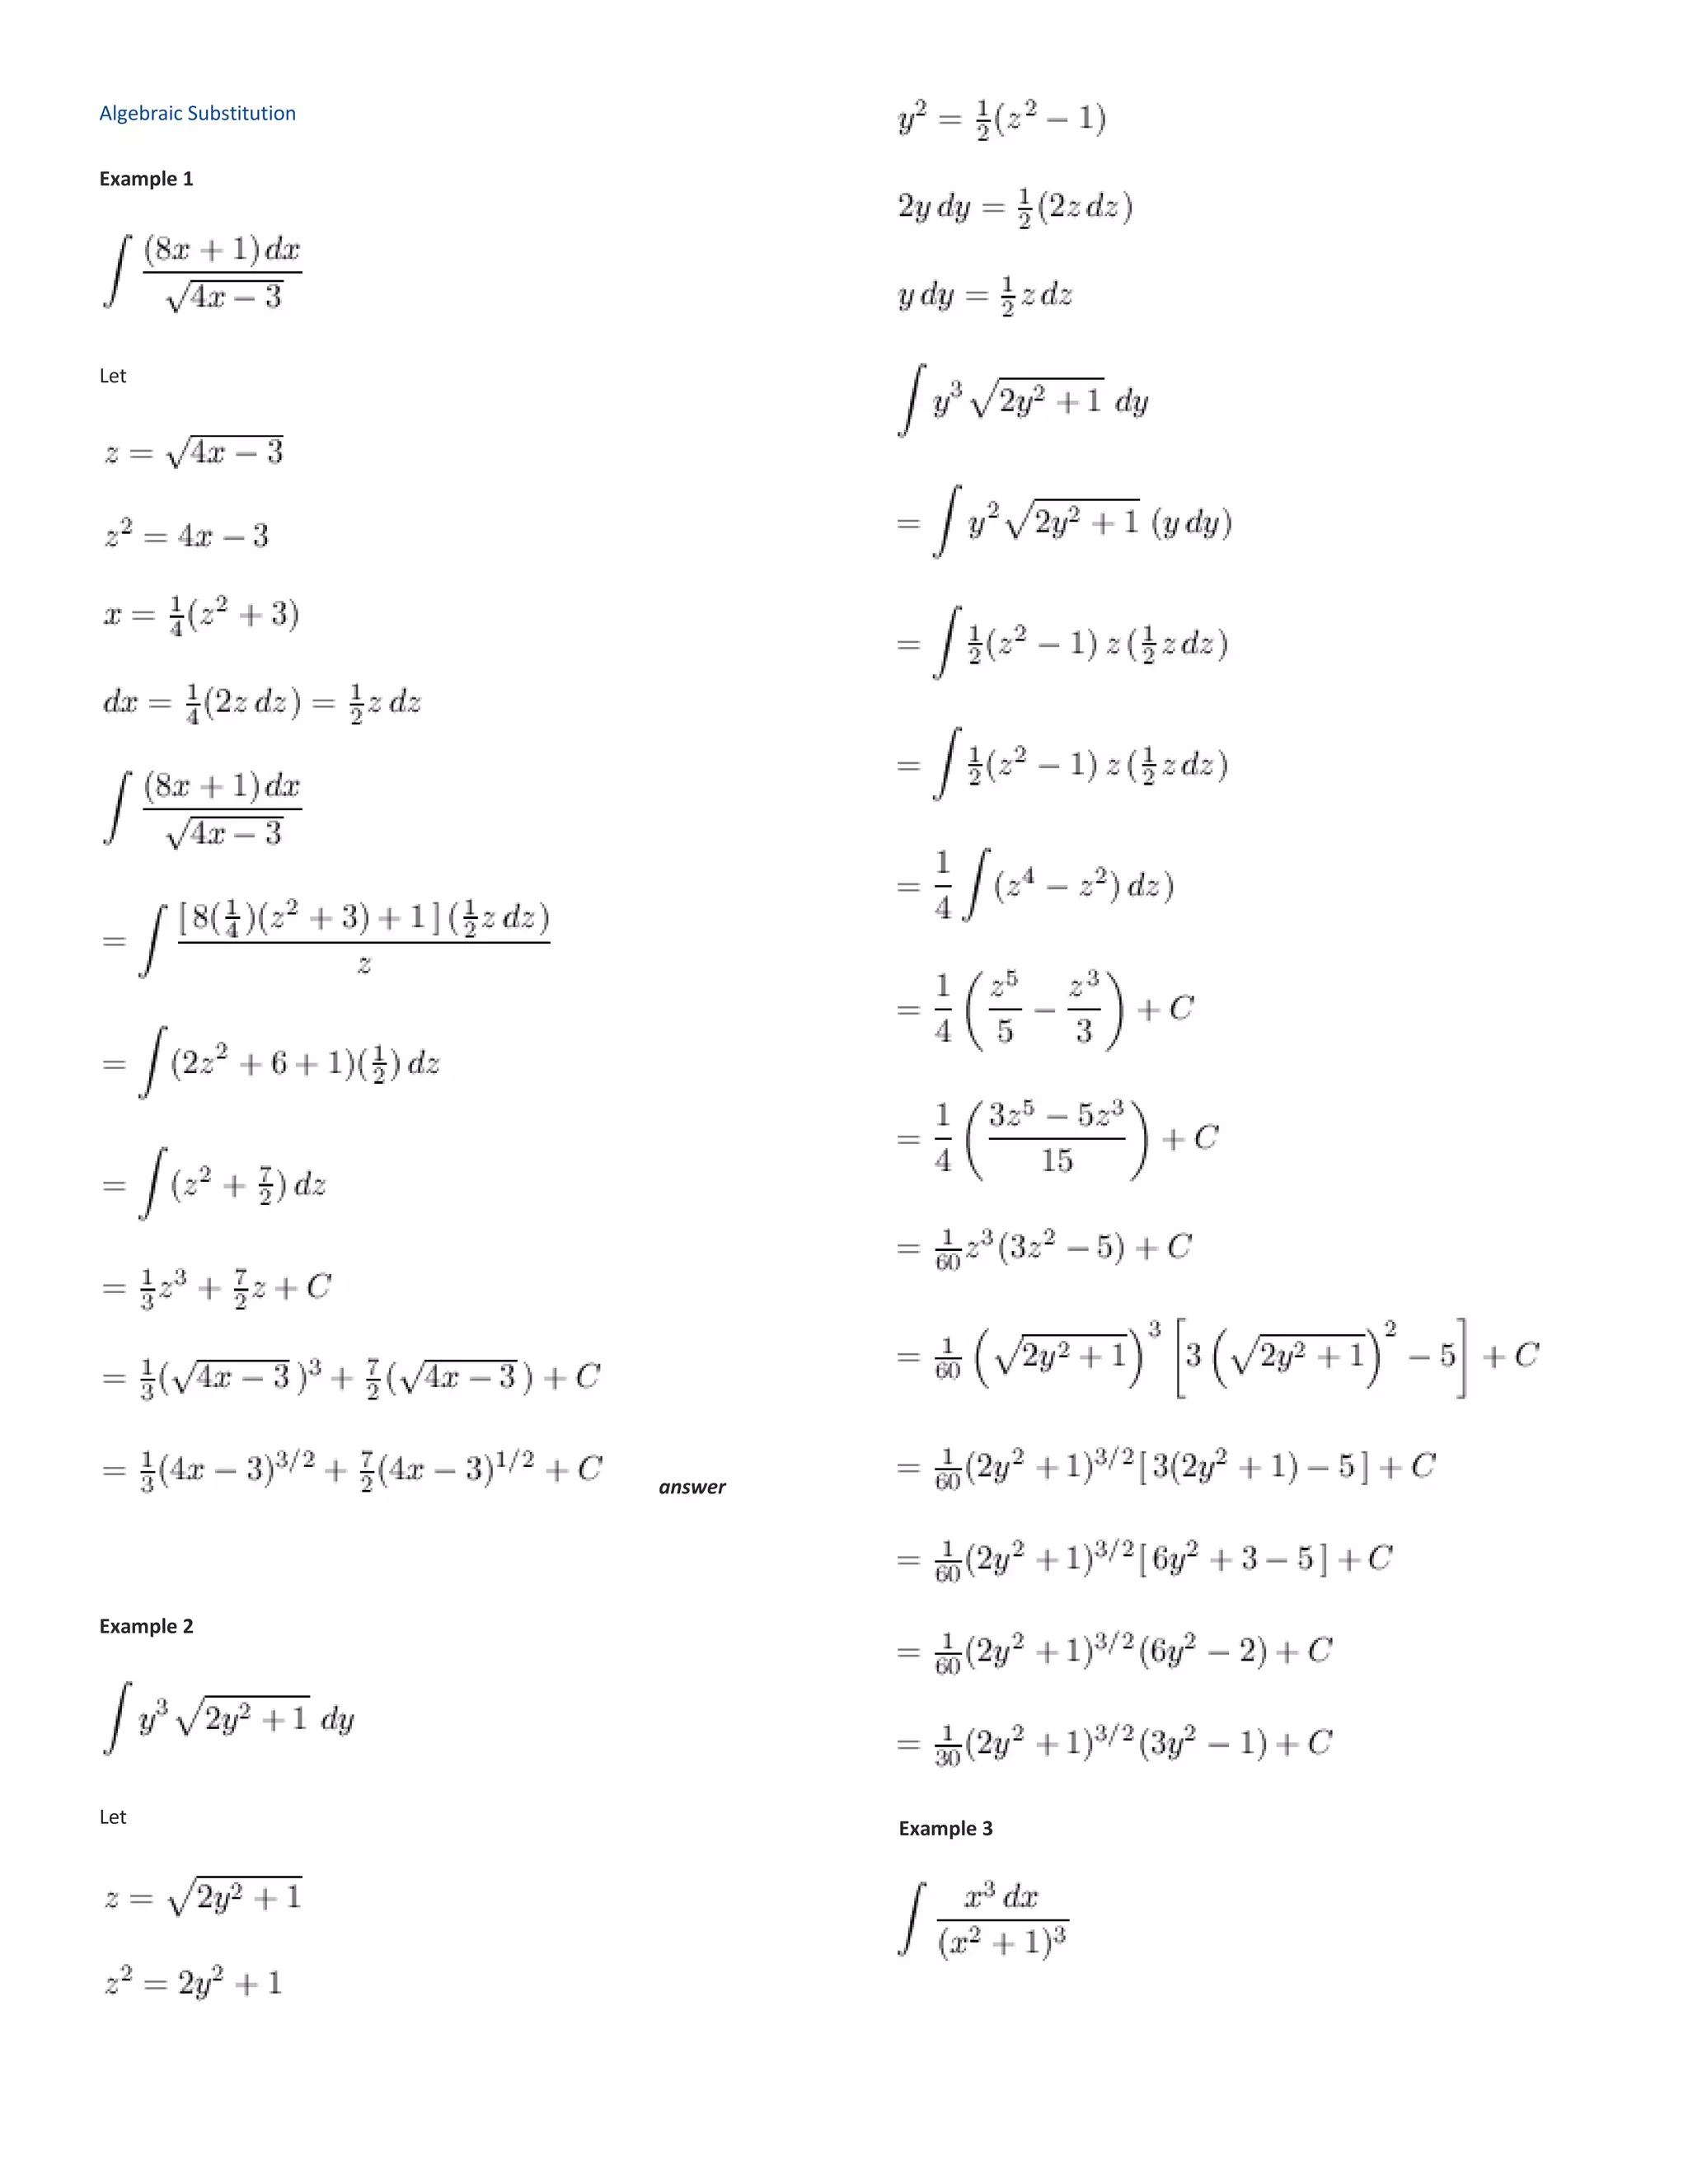 Algebraic Substitution
Example 1
∫ (8x + 1) dx / √(4x − 3)
Let
z = √(4x − 3)
z² = 4x − 3
x = ¼(z² + 3)
dx = ¼(2z dz) = ½ z dz
∫ (8x + 1) dx / √(4x − 3)
= ∫ [ 8(¼)(z² + 3) + 1 ] (½ z dz) / z
= ∫ (2z² + 6 + 1)(½) dz
= ∫ (z² + 7/2) dz
= ⅓z³ + 7/2 z + C
= ⅓(√(4x − 3))³ + 7/2 (√(4x − 3)) + C
= ⅓(4x − 3)^3/2 + 7/2 (4x − 3)^1/2 + C answer
Example 2
∫ y³ √(2y² + 1) dy
Let
z = √(2y² + 1)
z² = 2y² + 1
y² = ½(z² − 1)
2y dy = ½(2z dz)
y dy = ½ z dz
∫ y³ √(2y² + 1) dy
= ∫ y² √(2y² + 1) (y dy)
= ∫ ½(z² − 1) z (½ z dz)
= ∫ ½(z² − 1) z (½ z dz)
= 1/4 ∫ (z⁴ − z²) dz)
= 1/4 (z⁵/5 − z³/3) + C
= 1/4 ((3z⁵ − 5z³)/15) + C
= 1/60 z³(3z² − 5) + C
= 1/60 (√(2y² + 1))³ [3 (√(2y² + 1))² − 5] + C
= 1/60 (2y² + 1)^3/2 [ 3(2y² + 1) − 5 ] + C
= 1/60 (2y² + 1)^3/2 [ 6y² + 3 − 5 ] + C
= 1/60 (2y² + 1)^3/2 (6y² − 2) + C
= 1/30 (2y² + 1)^3/2 (3y² − 1) + C
Example 3
∫ x³ dx / (x² + 1)³